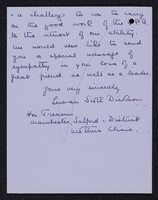 - a challenge to us to carry
on the good work of the
to the utmost of our ability.
We would also like to send
you a special message of
sympathy in your loss of a
great friend as well as a leader.
Yours very sincerely,
Scott Dickson
Hon Treasurer
Manchester, Salford & District
Mothers Clinic.